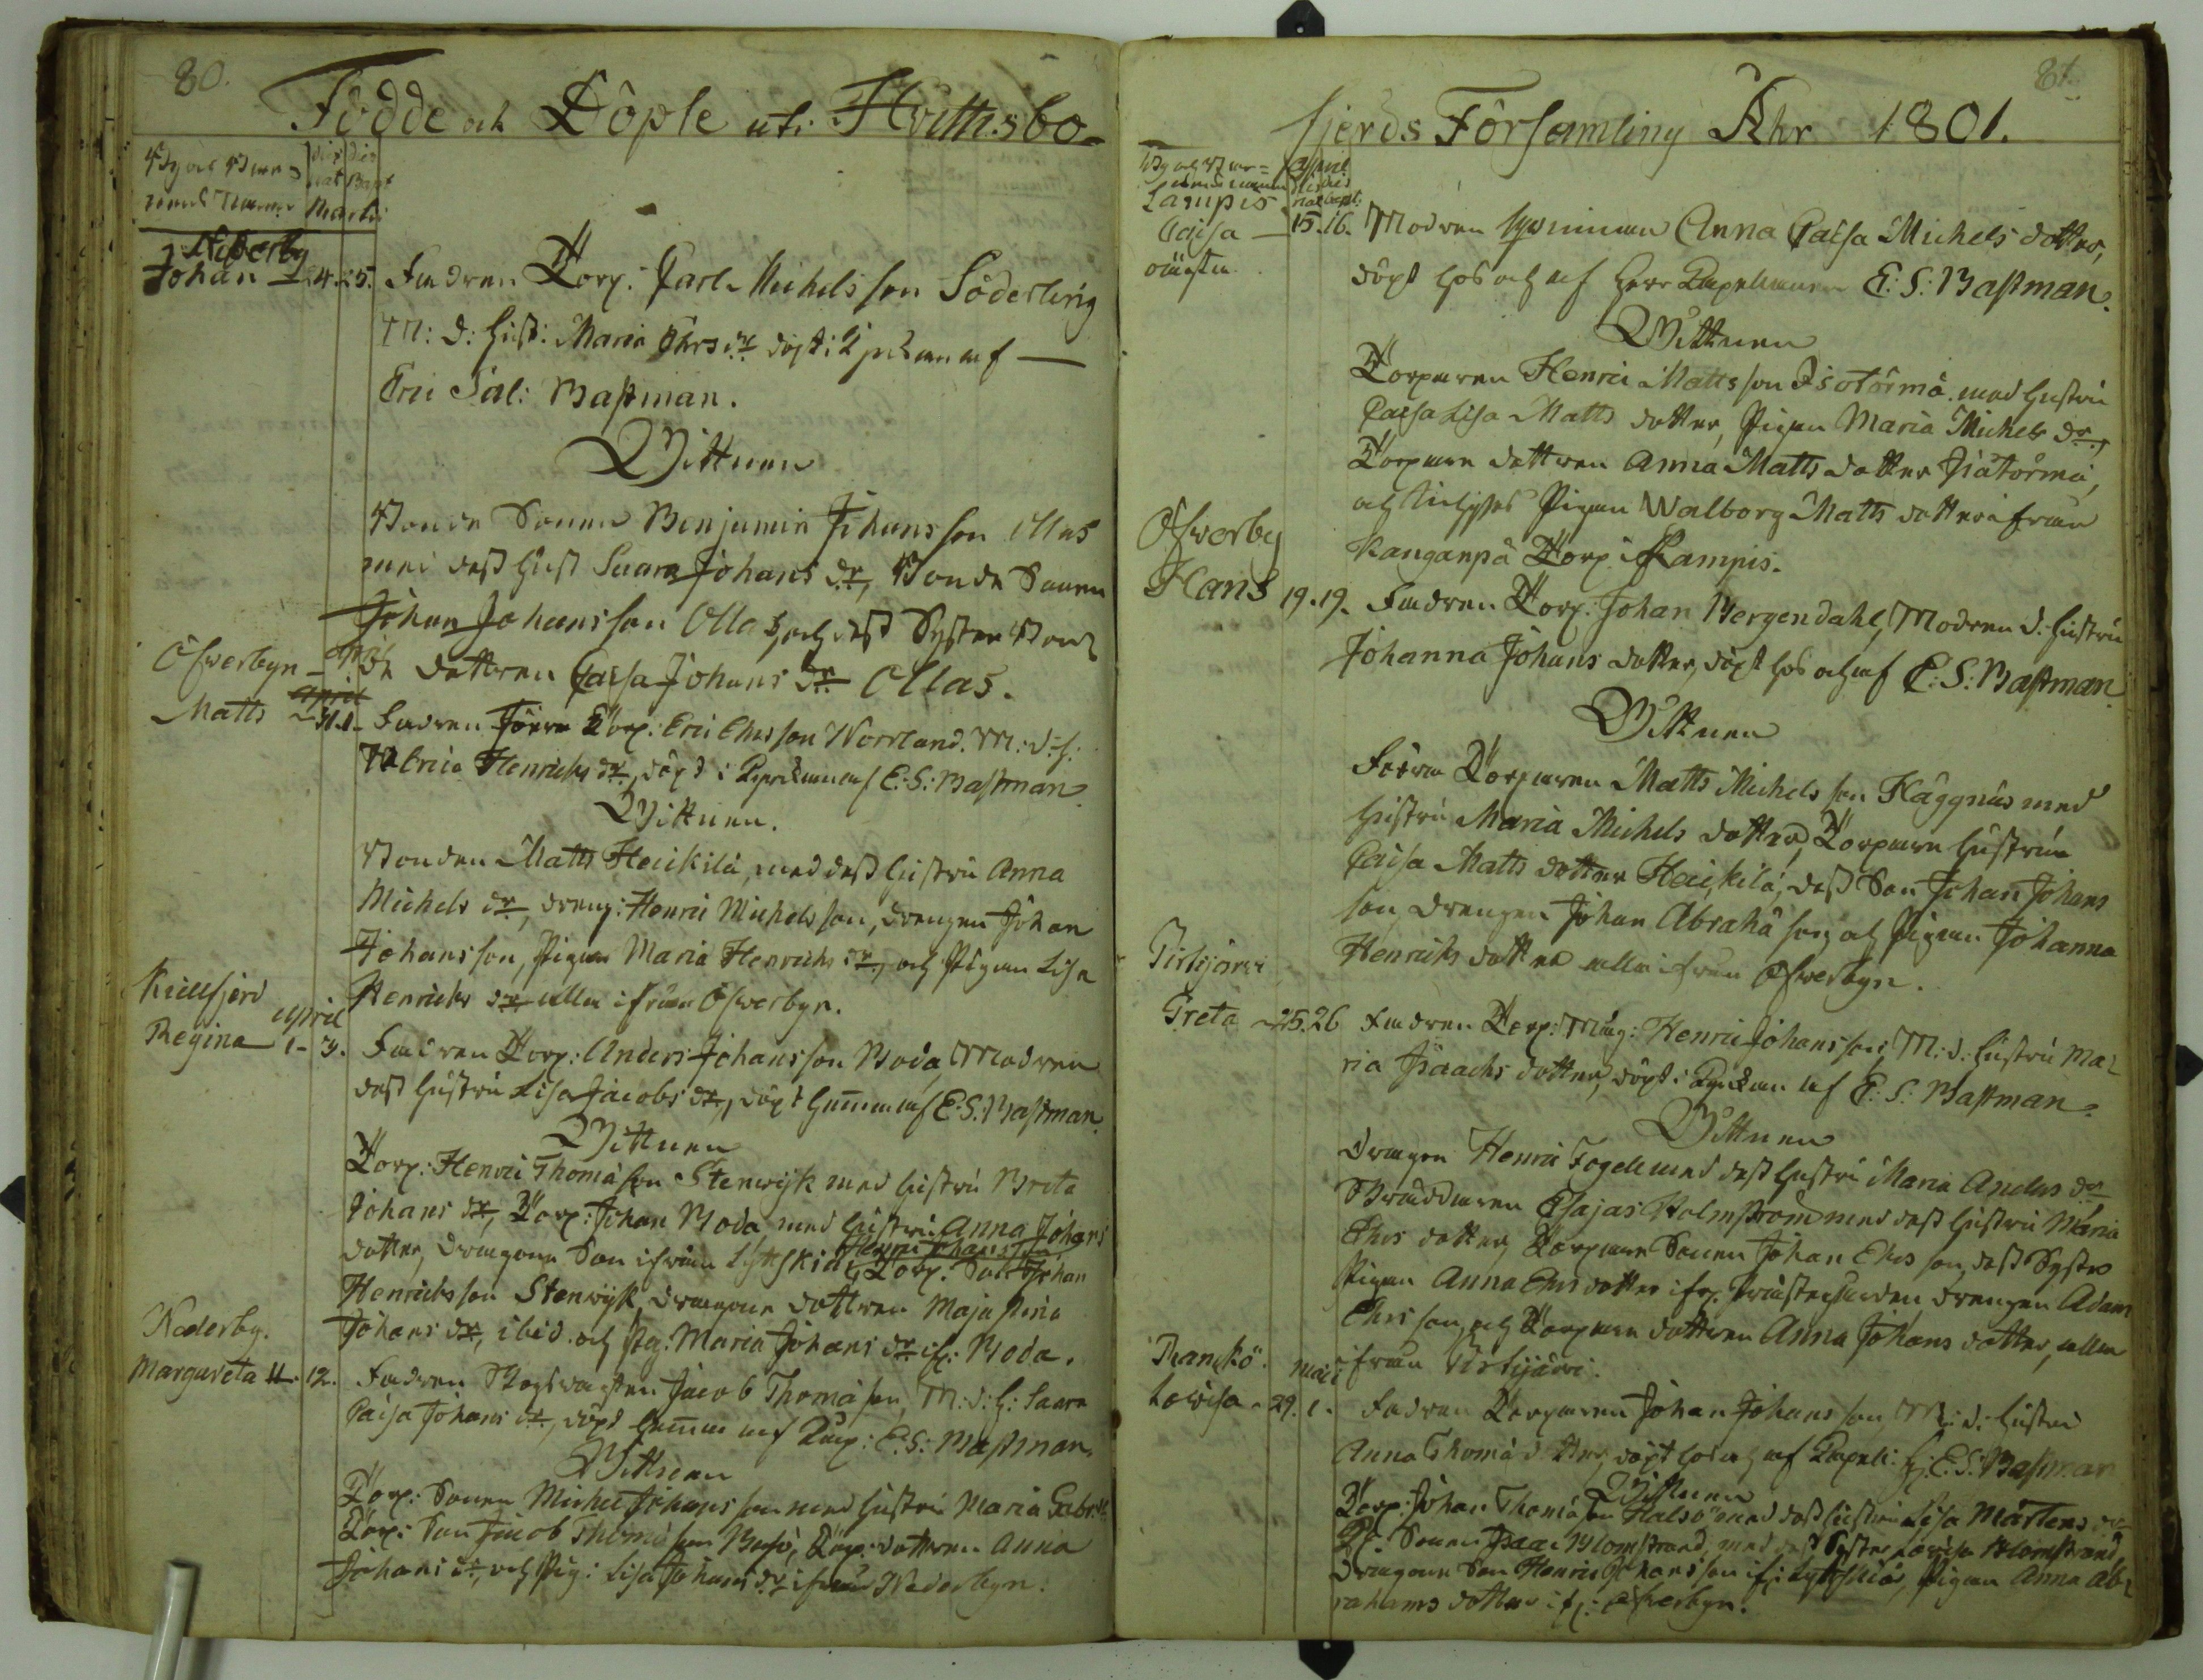 80.
Födde och Döpte uti Hvittisbo-
Byar Barn-
nens Namn
dies dies
nat Bapt
Martii
Nederby
Johan 24. 25. Fadren Torp: Carl Michelsson Söderling
M: d: Hust: Maria Ehrs dr döpt i Kyrckan af
Eric Sal: Bastman.
Wittnen
Bonde Sonen Benjamin Johansson Ollas
med dess Hust Saara Johans dr, Bonde Sonen
Johan Johansson Ollas, och dess Syster Bon-
de dottren Caisa Johans dr Ollas.
Öfwerbyn
april
Matts 31. 1. Fadren Förra Torp: Eric Ehrsson Norrland. M: d: h:
Ulrica Henrichs dr, döpt i Kyrckan af E: S: Bastman
Wittnen.
Bonden Matts Heickilä, med dess hustru Anna
Michels dr, dreng: Henric Michelsson, drengen Johan
Johansson, Pigan Maria Henrichs dr, och Pigan Lisa
Henrichs dr alla ifrån Öfwerbyn.
april
Regina 1. 3. Fadren Torp: Anders Johansson Boda, Modren
dess hustru Lisa Jacobs dr, döpt hemma af E: S: Bastman.
Wittnen
Torp: Henric Thomasson Stenwijk med hustru Breta
Johans dr, Torp: Johan Boda med hustru Anna Johans
dotter, dragone Son ifrån Henric Johansson Torp: Son Johan
Henricksson Stenwijk, dragone dottren Maja Stina
Johans dr, ibid. och Pig: Maria Johans dr if: Boda.
Nederby.
Margareta 11. 12. Fadren Jacob Thomasson, M: d: h: Saara
Caisa Johans dr, döpt hemma af Cap: E: S: Bastman.
Wittnen
Torp: Sonen Michel Johansson med hustru Maria Gabr:
Torp: Son Jacob Thomasson Torp: dottren Anna
Johans dr, och Pig: Lisa Johans dr ifrån Nederbyn.
81.
fjerds Församling Åhr 1801.
April
dies dies
nat bapt:
Lampis
Caisa 15. 16. Modren Anna Caisa Michels dotter,
oäckta döpt hos och af Herr Capellanen E: S: Bastman.
Wittnen
Torparen Henric Mattsson Isotörmä med hustru
Caisa Lisa Matts dotter, Pigan Maria Michels dr,
Torpare dottren Anna Matts dotter Isotörmä,
och Pigan Walborg Matts dotter ifrån
Kanganpä Torp i Lampis.
Öfwerby
Hans 19. 19. Fadren Torp: Johan Bergendahl, Modren d: hustru
Johanna Johans dotter, döpt hos och af E: S: Bastman
Wittnen
Förra Torparen Matts Michelsson Häggnäs med
hustru Maria Michels dotter, Torpare hustrun
Caisa Matts dotter Heickilä, dess Son Johan Johans
son, drengen Johan Abrahasson och Pigan Johanna
Henrichs dotter alla ifrån Öfwerbyn.
Wirtijärvi
Greta 25. 26 Fadren Torp: Måg: Henric Johansson, M: d: hustru Ma-
ria Isaachs dotter, döpt i Kyrckan af E: S: Bastman.
Wittnen
Dragon Henric Fogel med dess hustru Maria Anders dr
Skräddaren Esajas Holmström med dess hustru Maria
Ehrs dotter, Torpare Sonen Johan Ehrsson, dess Syster
Pigan Anna Ehrs dotter ifr: drengen Adam
Ehrsson, och Torpare dottren Anna Johans dotter, alla
ifrån Wirtijärvi.
Trankö
maii
Lovisa 29. 1. Fadren Torparen Johan Johansson, M: d: hustru
Anna Thomæ dotter, döpt hos och af Capell: H: E: S: Bastman
Wittnen
Torp: Johan Thomasson Halsö med dess hustru Lisa Mårtens dr
Sonen Isaac Blomstrand, med dess Syster Lovisa Blomstrand
dragone Son Henric Johansson if: Lyttskiär, Pigan Anna Ab-
rahams dotter if: Öfwerbyn.